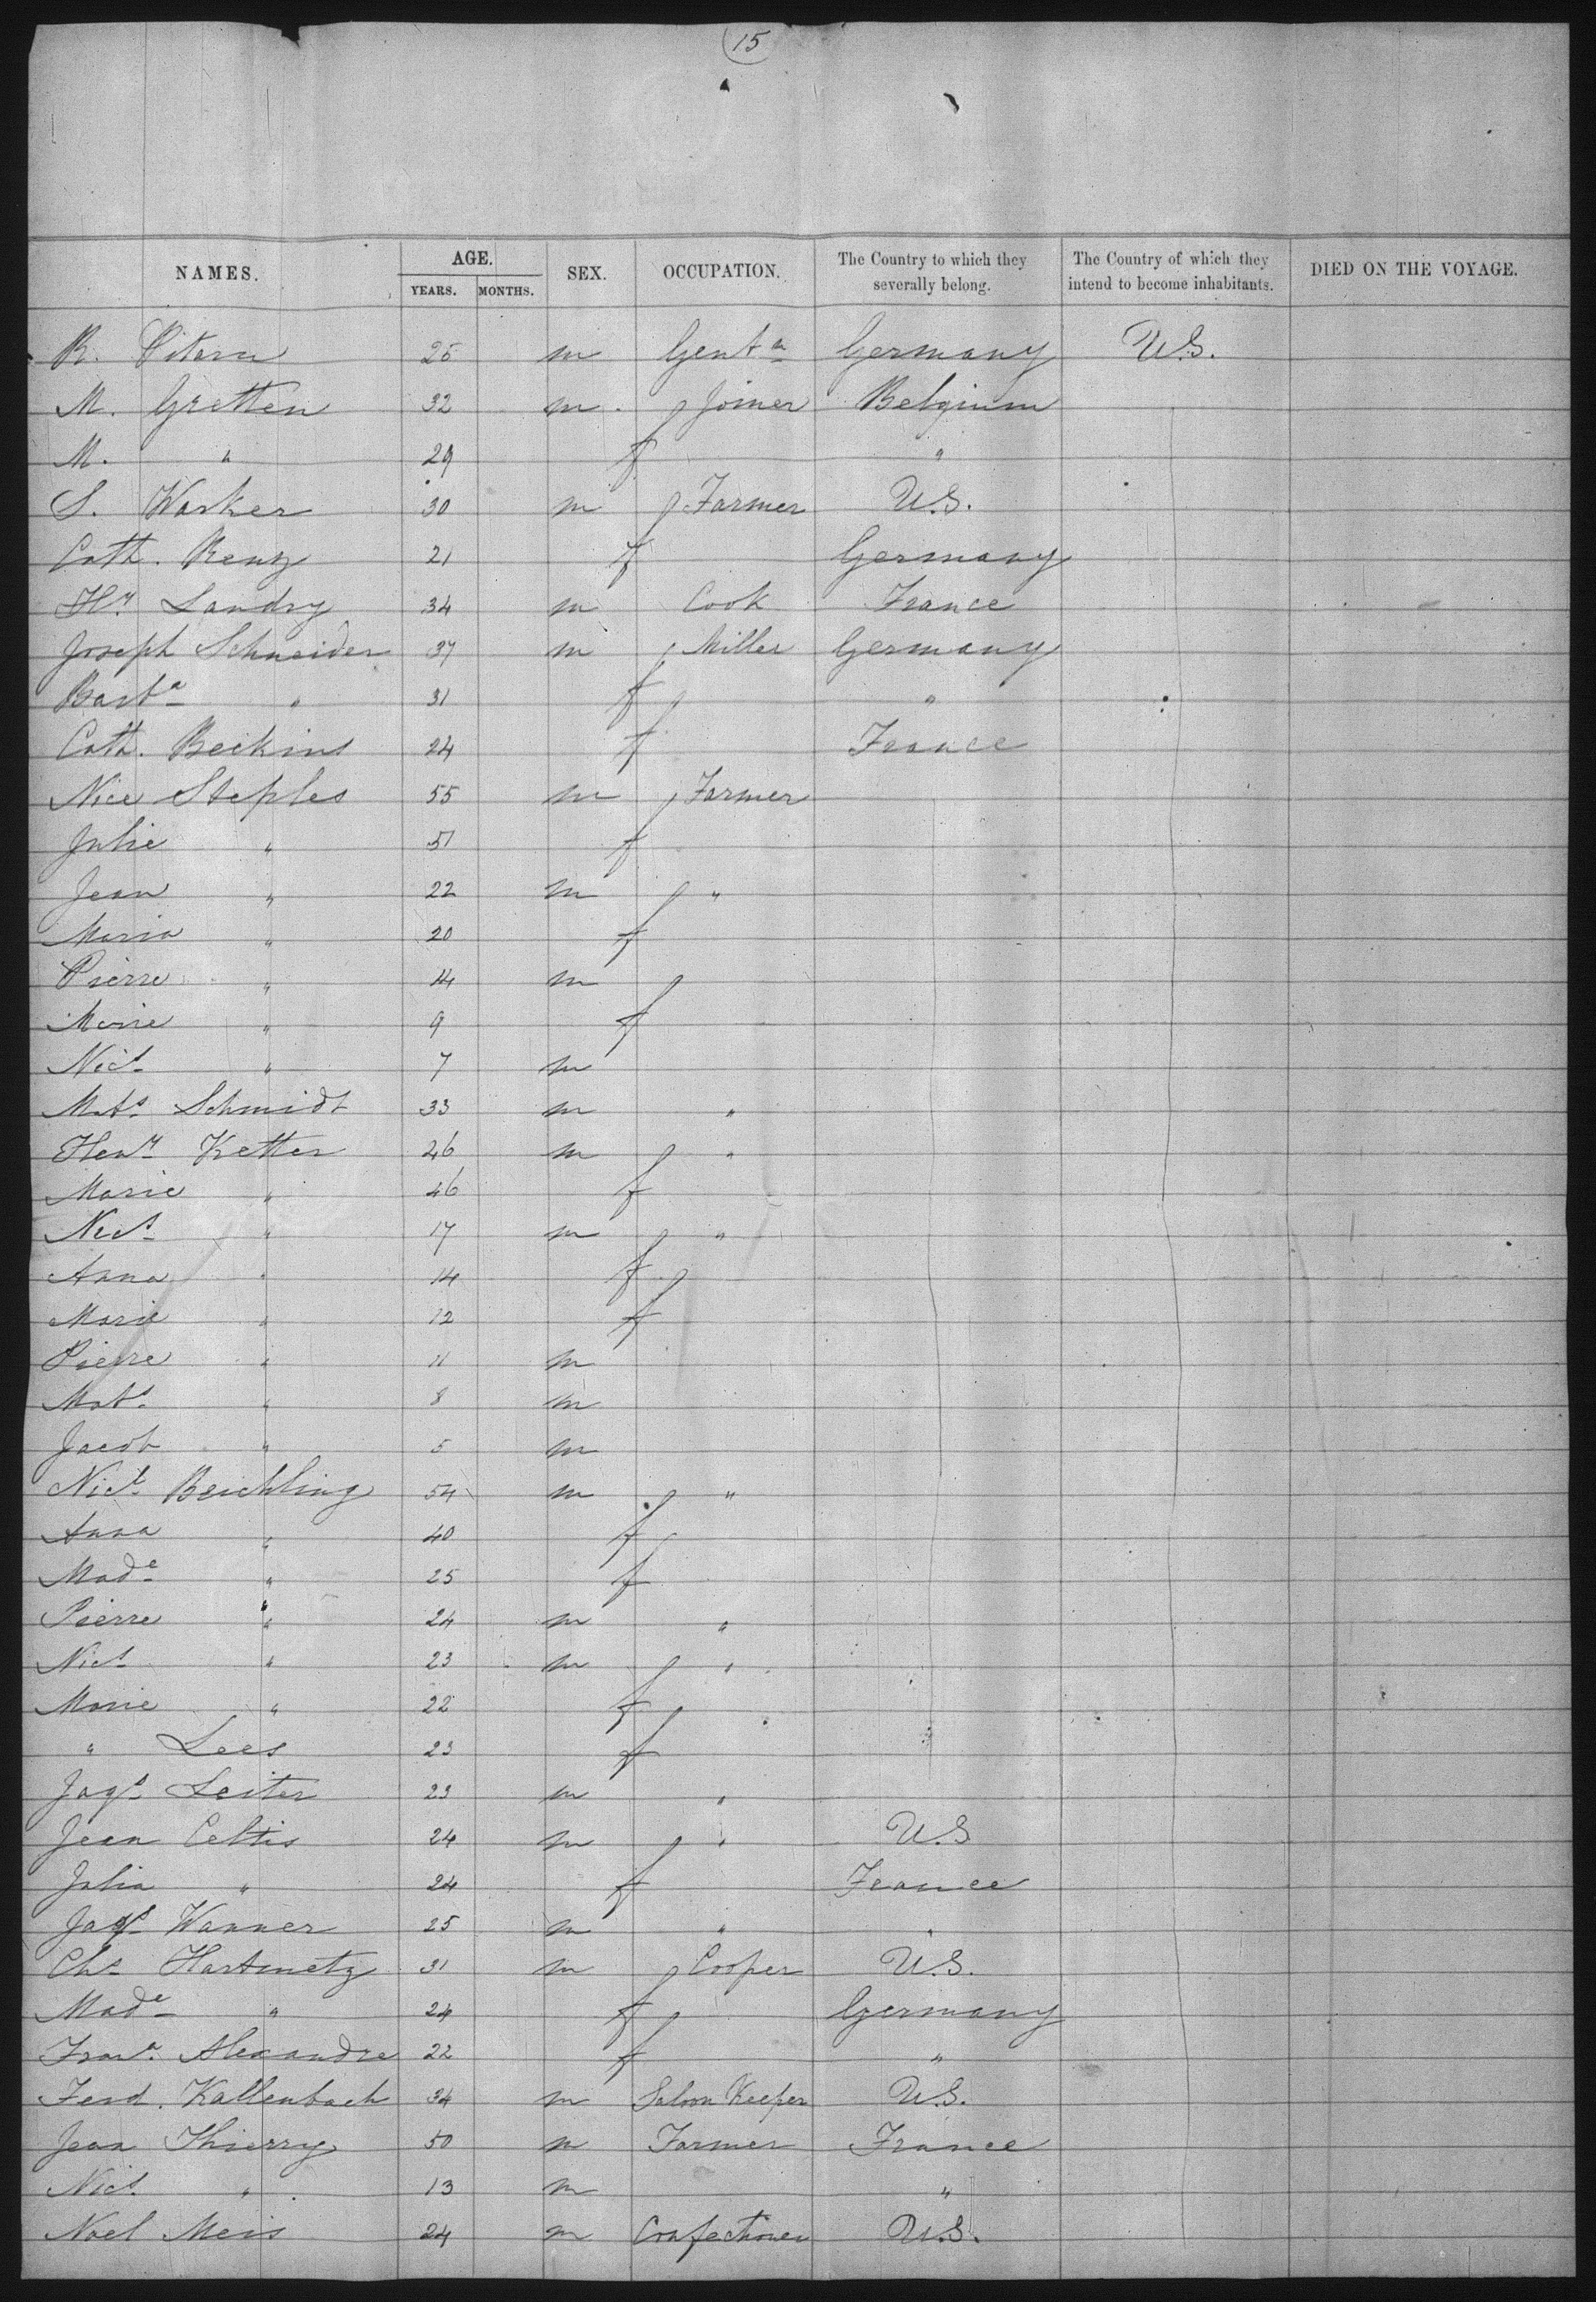 15
NAMES. AGE. SEX. OCCUPATION. The Country to which they severally belong. The Country of which they intend to become inhabitants. DIED ON THE VOYAGE.
YEARS. MONTHS.
R. 25 m Gentn Germany U.S.
M. Gretten 32 m. Joiner Belgium
M. " 29 f "
S. Warker 30 m Farmer U.S.
Cath. Renz 21 f Germany
Hy Landry 34 m Cook France
Joseph Schneider 37 m Miller Germany
Barba " 31 f "
Cath. Beckins 24 f France
Nice Steples 55 m Farmer
Julie " 51 f
Jean " 22 m "
Maria " 20 f
Pierre " 14 m
Marie " 9 f
Nics " 7 m
Mats Schmidt 33 m "
Heny Ketter 46 m "
Marie " 46 f
Nics " 17 m "
Anna " 14 f
Marie " 12 f
Pierre " 11 m
Mats " 8 m
Jacob " 5 m
Nics Beichling 54 m "
Anna " 40 f
Made " 25 f
Pierre " 24 m "
Nics " 23 m "
Marie " 22 f
" Lees 23 f
Jaqs Leiter 23 m "
Jean Celtis 24 m " U.S
Julia " 24 f France
Jaqs Wanner 25 m " "
Chs Hartmetz 31 m Cooper U.S.
Made " 24 f Germany
Frana Alexandre 22 f "
Ferd. Kallenbach 34 m Saloon Keeper U.S.
Jean Thierry 50 m Farmer France
Nics " 13 m "
Noel Meis 24 m Confectioner U.S.